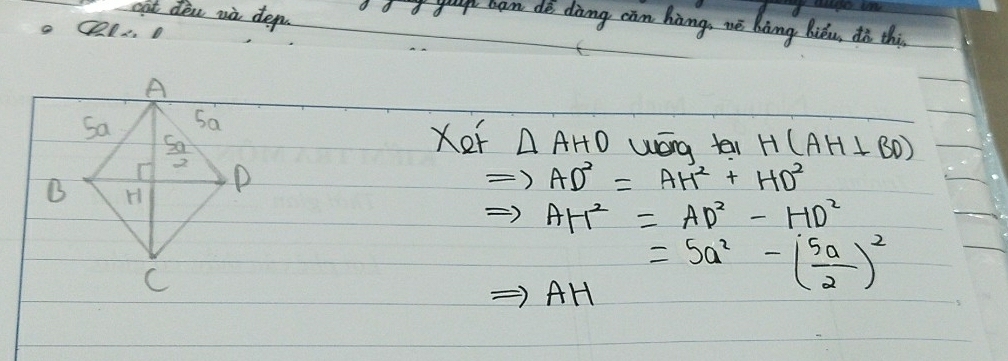 cột đều và đẹp.
giúp bạn dễ dàng căn hàng, vẽ bảng biểu, đồ thị.
A
5a
5a
5a/2
B
H
D
C
Xét Δ AHD vuông tại H (AH ⊥ BD)
=> AD² = AH² + HD²
=> AH² = AD² - HD²
= 5a² - (5a/2)²
=> AH